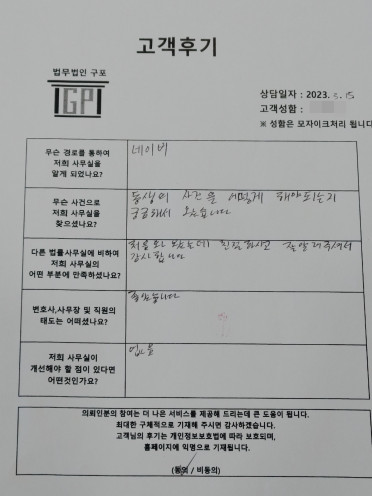 고객후기
법무법인 구포
GP
상담일자 : 2023. 5. 15
고객성함 :
※ 성함은 모자이크처리 됩니다
무슨 경로를 통하여
저희 사무실을
알게 되었나요?
네이버
무슨 사건으로
저희 사무실을
찾으셨나요?
동생의 사건을 어떻게 해야되는지
궁금해서 왔습니다
다른 법률사무실에 비하여
저희 사무실의
어떤 부분에 만족하셨나요?
처음와 봤는데 친절하시고 잘알려주셔서
감사합니다
변호사,사무장 및 직원의
태도는 어떠셨나요?
좋았습니다
저희 사무실이
개선해야 할 점이 있다면
어떤것인가요?
없음
의뢰인분의 참여는 더 나은 서비스를 제공해 드리는데 큰 도움이 됩니다.
최대한 구체적으로 기재해 주시면 감사하겠습니다.
고객님의 후기는 개인정보보호법에 따라 보호되며,
홈페이지에 익명으로 기재됩니다.
(동의 / 비동의)